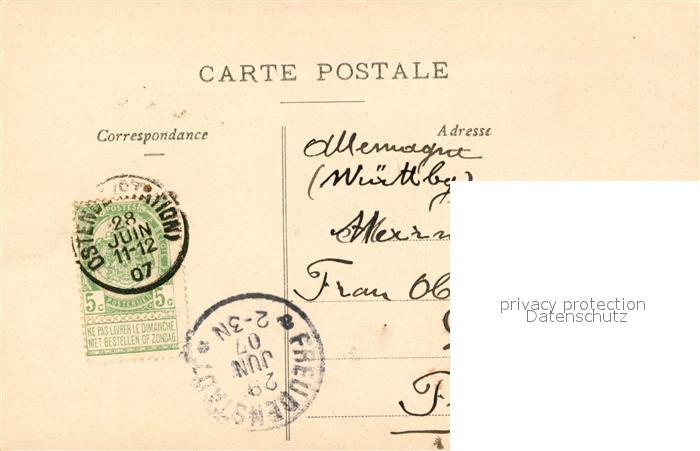 CARTE POSTALE
Correspondance
Adresse
Allemagne
(Württbg)
Herrn
Frau Ob
F
OSTENDE (STATION)
28
JUIN
11-12
07
POSTES
POSTERIJEN
5c 5c
NE PAS LIVRER LE DIMANCHE
NIET BESTELLEN OP ZONDAG
FREUDENSTADT
29
JUN
07
2-3N
privacy protection
Datenschutz